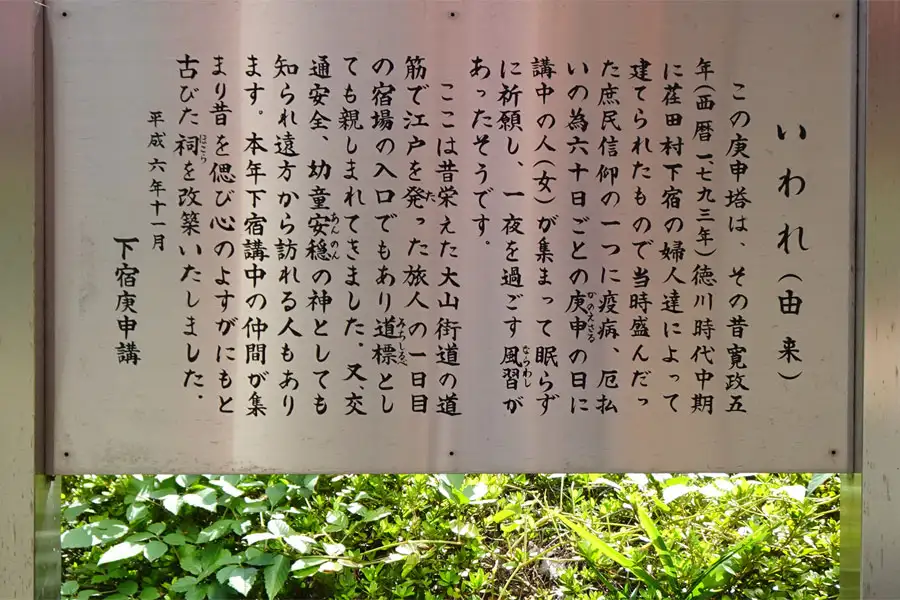 いわれ(由来)
この庚申塔は、その昔寛政五
年(西暦一、七九三年)徳川時代中期
に荏田村下宿の婦人達によって
建てられたもので当時盛んだっ
た庶民信仰の一つに疫病、厄払
いの為六十日ごとの庚申の日に
講中の人(女)が集まって眠らず
に祈願し、一夜を過ごす風習が
あったそうです。
ここは昔栄えた大山街道の道
筋で江戸を発った旅人の一日目
の宿場の入口でもあり道標とし
ても親しまれてきました。又、交
通安全、幼童安穏の神としても
知られ遠方から訪れる人もあり
ます。本年下宿講中の仲間が集
まり昔を偲び心のよすがにもと
古びた祠を改築いたしました。
平成六年十一月
下宿庚申講